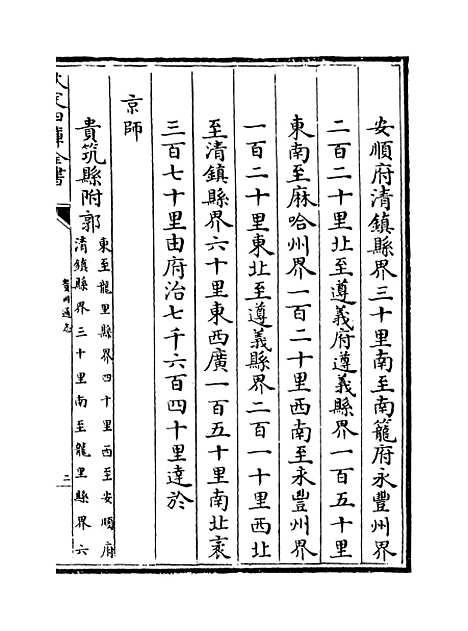 安順府清鎮縣界三十里南至南籠府永豐州界
二百二十里北至遵義府遵義縣界一百五十里
東南至麻哈州界一百二十里西南至永豐州界
一百二十里東北至遵義縣界二百一十里西北
至清鎮縣界六十里東西廣一百五十里南北袤
三百七十里由府治七千六百四十里達於
京師
貴筑縣附郭
東至龍里縣界四十里西至安順府
清鎮縣界三十里南至龍里縣界六
欽定四庫全書
貴州通志